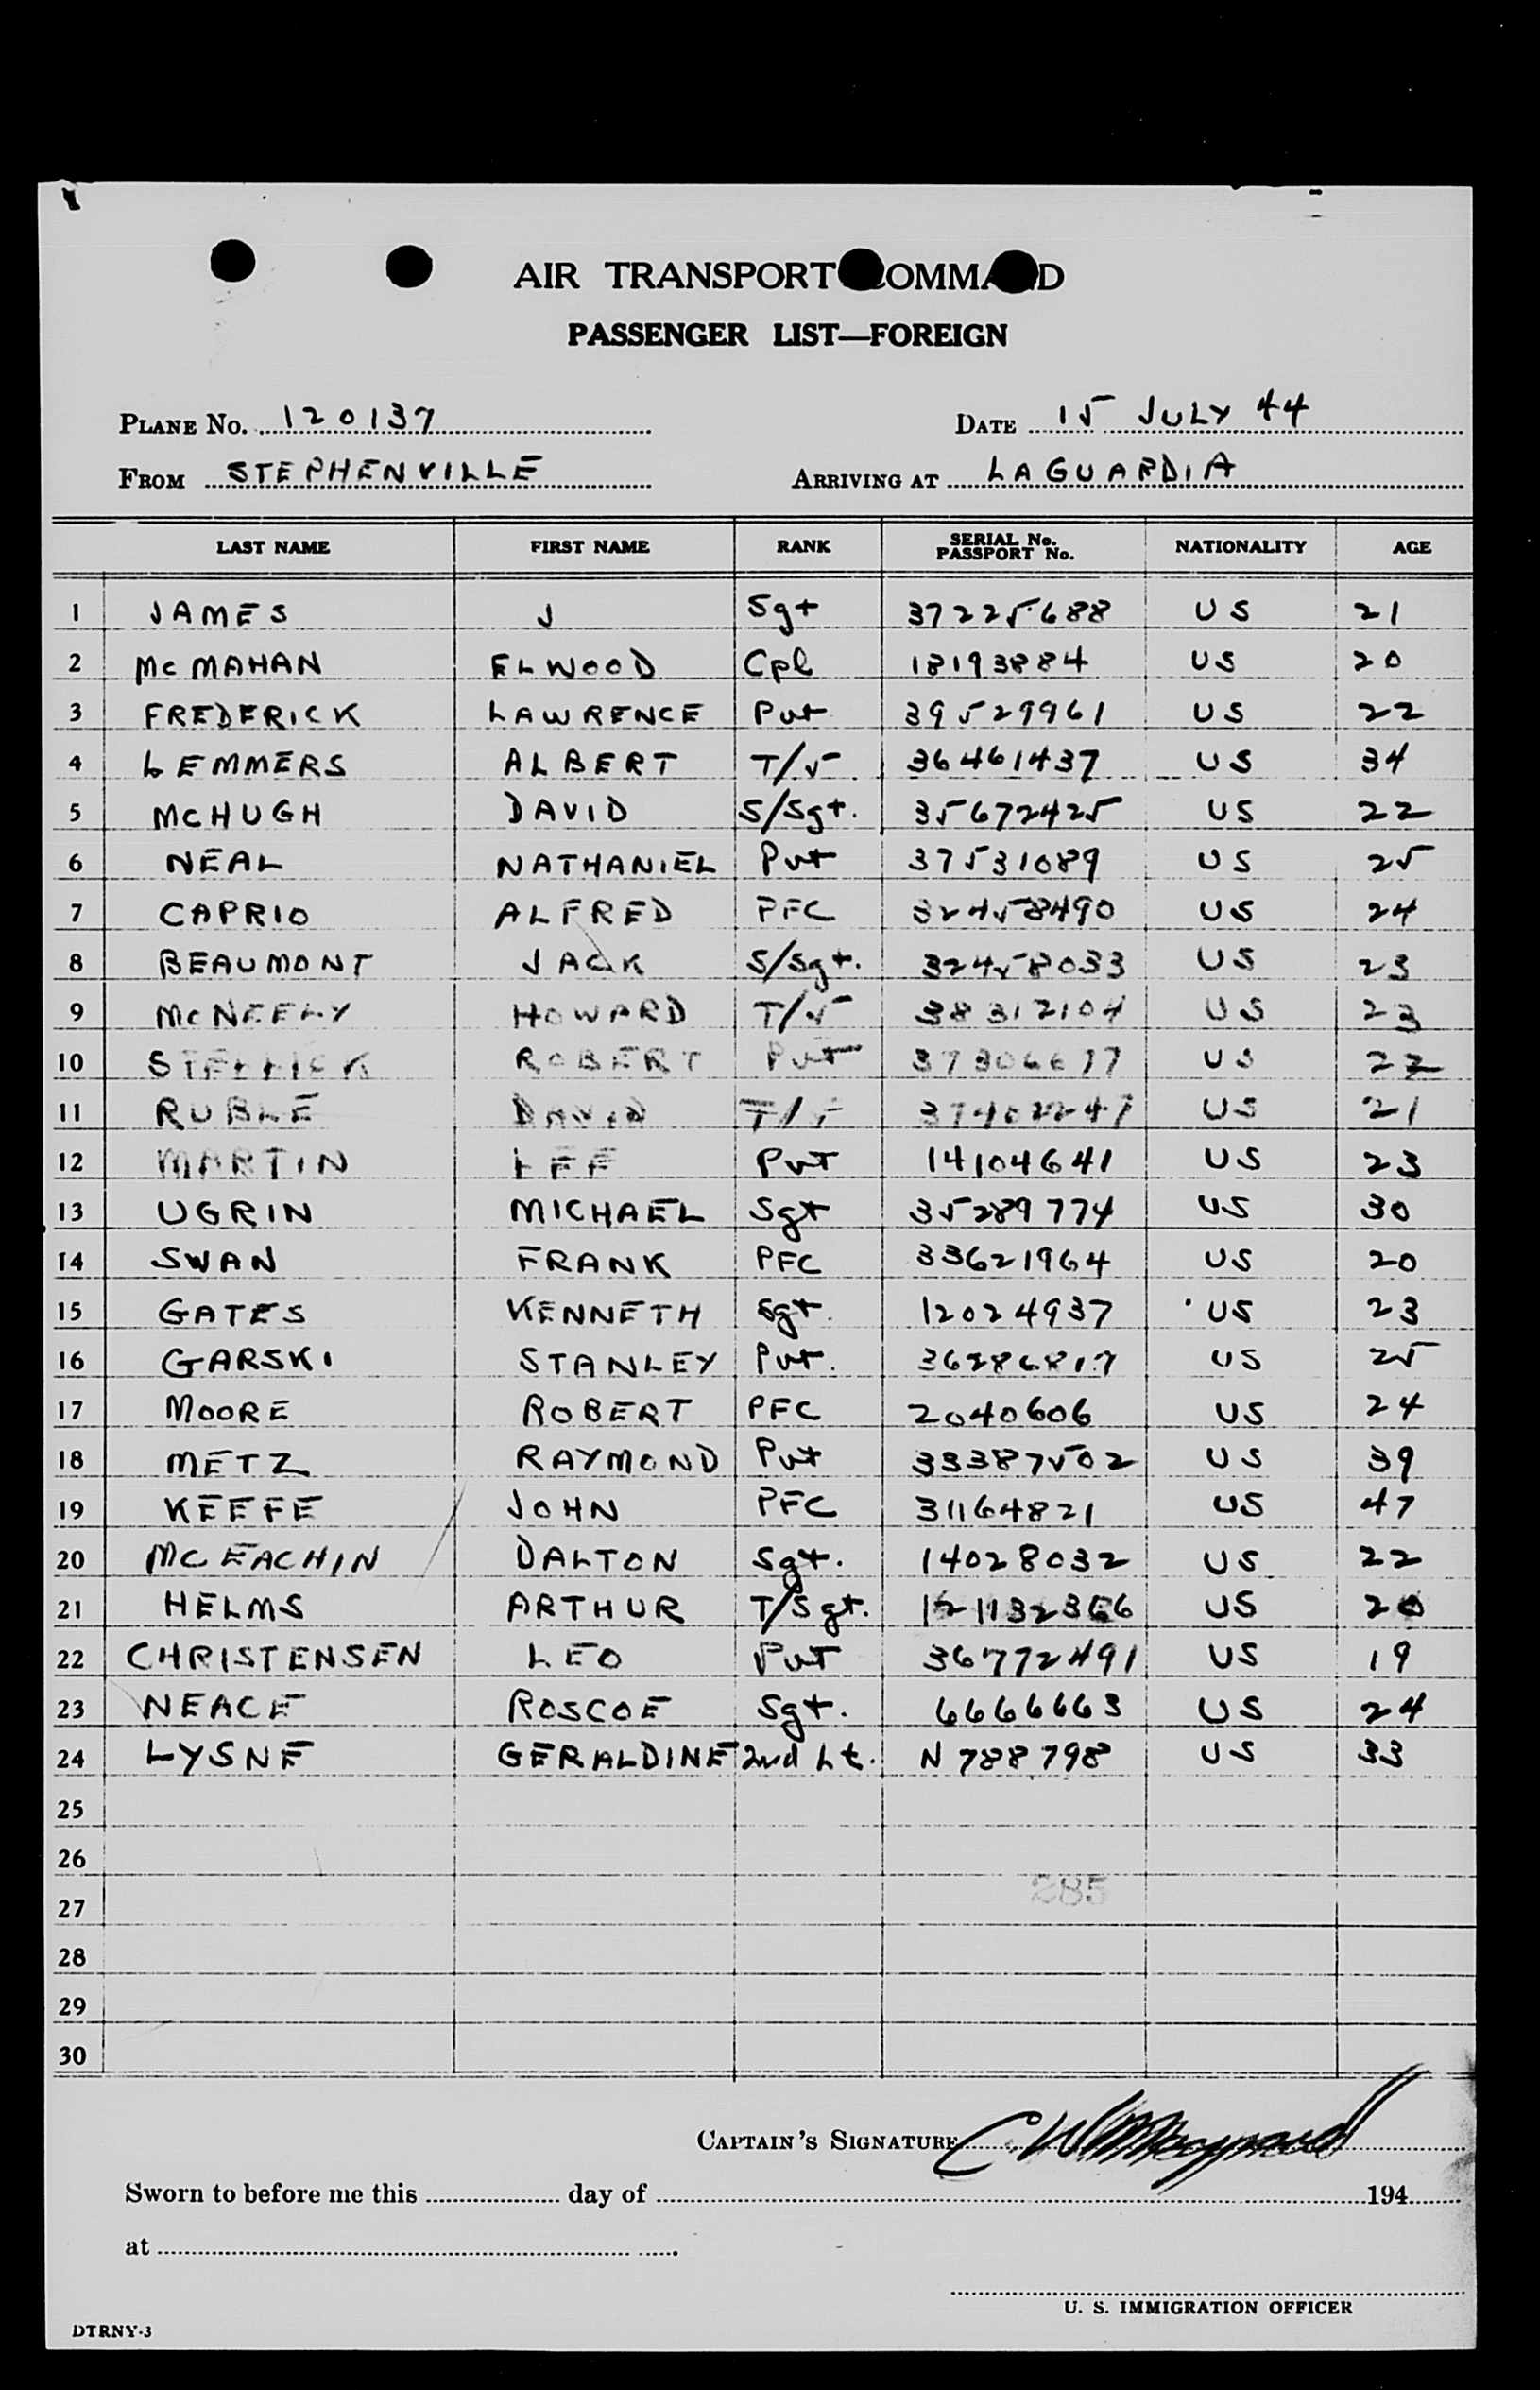 AIR TRANSPORT COMMAND
PASSENGER LIST—FOREIGN
PLANE No. 120137 DATE 15 JULY 44
FROM STEPHENVILLE ARRIVING AT LAGUARDIA
LAST NAME FIRST NAME RANK SERIAL No. PASSPORT No. NATIONALITY AGE
1 JAMES J Sgt 37225688 US 21
2 McMAHAN ELWOOD Cpl 18193884 US 20
3 FREDERICK LAWRENCE Pvt 39529961 US 22
4 LEMMERS ALBERT T/5 36461437 US 34
5 McHUGH DAVID S/Sgt. 35672425 US 22
6 NEAL NATHANIEL Pvt 37531089 US 25
7 CAPRIO ALFRED PFC 32458490 US 24
8 BEAUMONT JACK S/Sgt. 32458033 US 23
9 McNEELY HOWARD T/5 38312104 US 23
10 ROBERT Pvt US 22
11 RUBLE DAVID US 21
12 MARTIN LEE Pvt 14104641 US 23
13 UGRIN MICHAEL Sgt 35289774 US 30
14 SWAN FRANK PFC 33621964 US 20
15 GATES KENNETH Sgt. 12024937 US 23
16 GARSKI STANLEY Pvt. 36286817 US 25
17 MOORE ROBERT PFC 2040606 US 24
18 METZ RAYMOND Pvt 33387502 US 39
19 KEEFE JOHN PFC 31164821 US 47
20 McEACHIN DALTON Sgt. 14028032 US 22
21 HELMS ARTHUR T/Sgt. US 20
22 CHRISTENSEN LEO Pvt 36772491 US 19
23 NEACE ROSCOE Sgt. 6666663 US 24
24 LYSNE GERALDINE 2nd Lt. N 788798 US 33
25
26
285
27
28
29
30
CAPTAIN'S SIGNATURE
Sworn to before me this day of 194
at
U. S. IMMIGRATION OFFICER
DTRNY-3